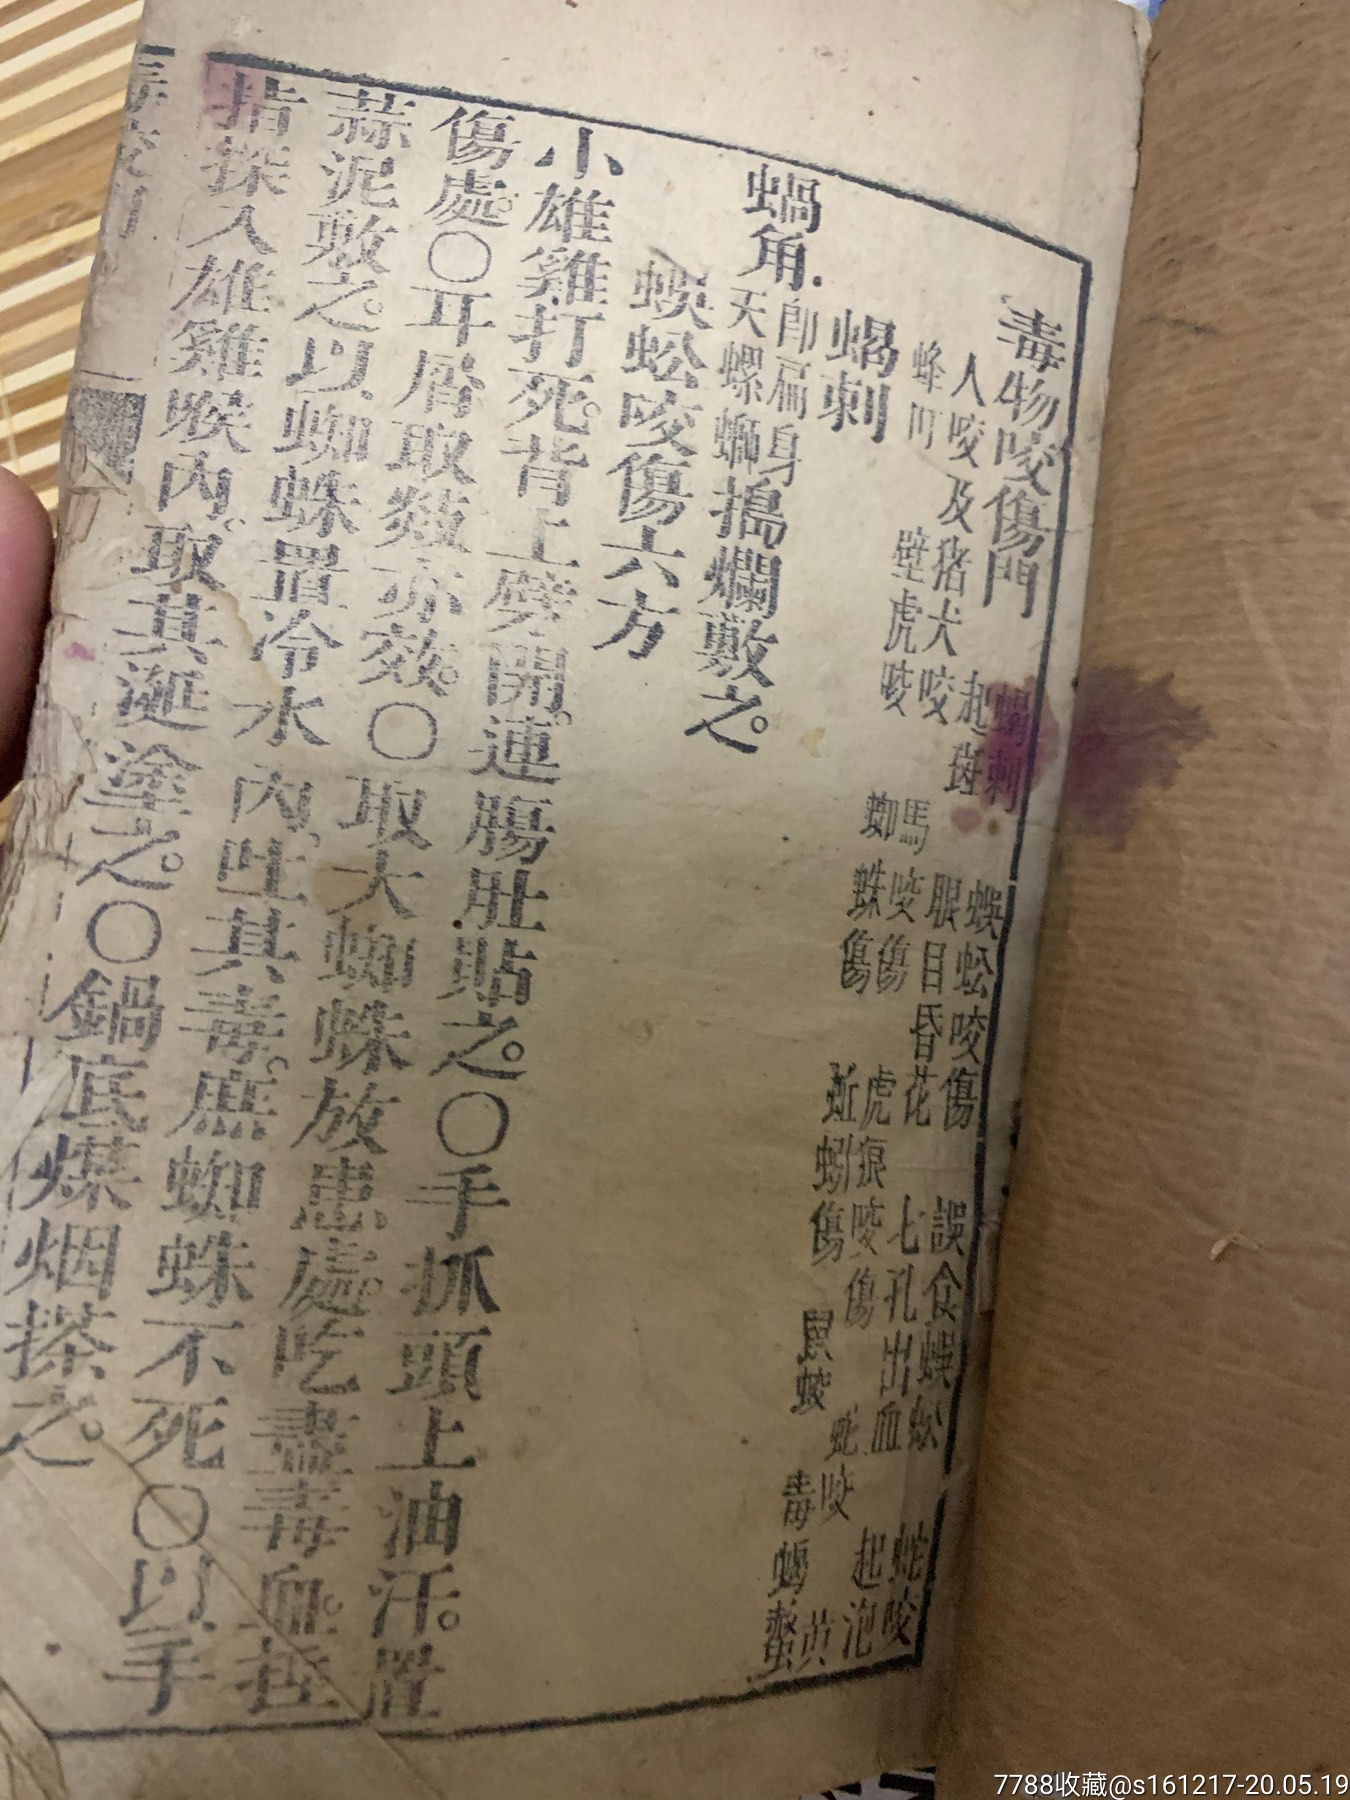 毒物咬傷門 蝎刺 蜈蚣咬傷 誤食蜈蚣 蛇咬
起斑 眼目昏花 七孔出血 起泡
人咬及猪犬咬 馬咬傷 虎狼咬傷 蛇咬
蜂叮 壁虎咬 蜘蛛傷 蚯蚓傷 鼠蛟 毒蝎螫
蝎刺
蝸角. 即扁身天螺螄 搗爛敷之。
蜈蚣咬傷六方
小雄雞打死。背上劈開。連腸肚貼之。〇手抓頭上油汗。置
傷處。〇耳屑取敷亦效。〇取大蜘蛛放患處。吃盡毒血。
蒜泥敷之。以蜘蛛置冷水內。吐其毒。庶蜘蛛不死〇以手
指探入雄雞喉內。取其涎塗之。〇鍋底煤烟搽之。
7788收藏@s161217-20.05.19